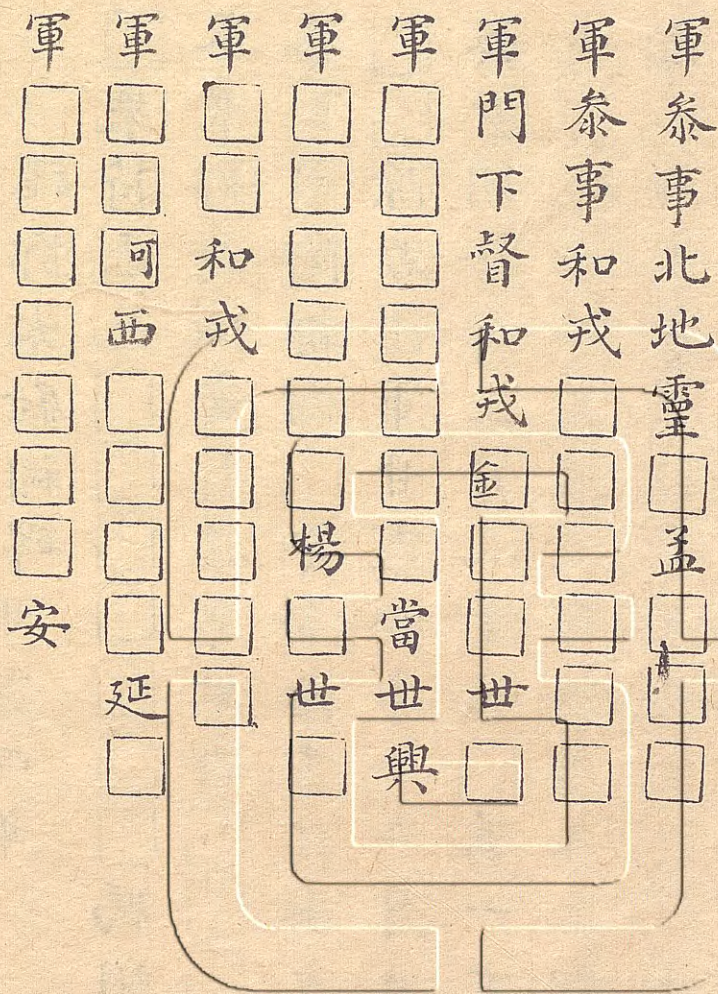 軍叅事北地靈□孟□□□
軍叅事和戎□□□□□□
軍門下督和戎金□□世□
軍□□□□□□□當世興
軍□□□□□□楊□世□
軍□□和戎□□□□□
軍□□可西□□□□延□
軍□□□□□□□安